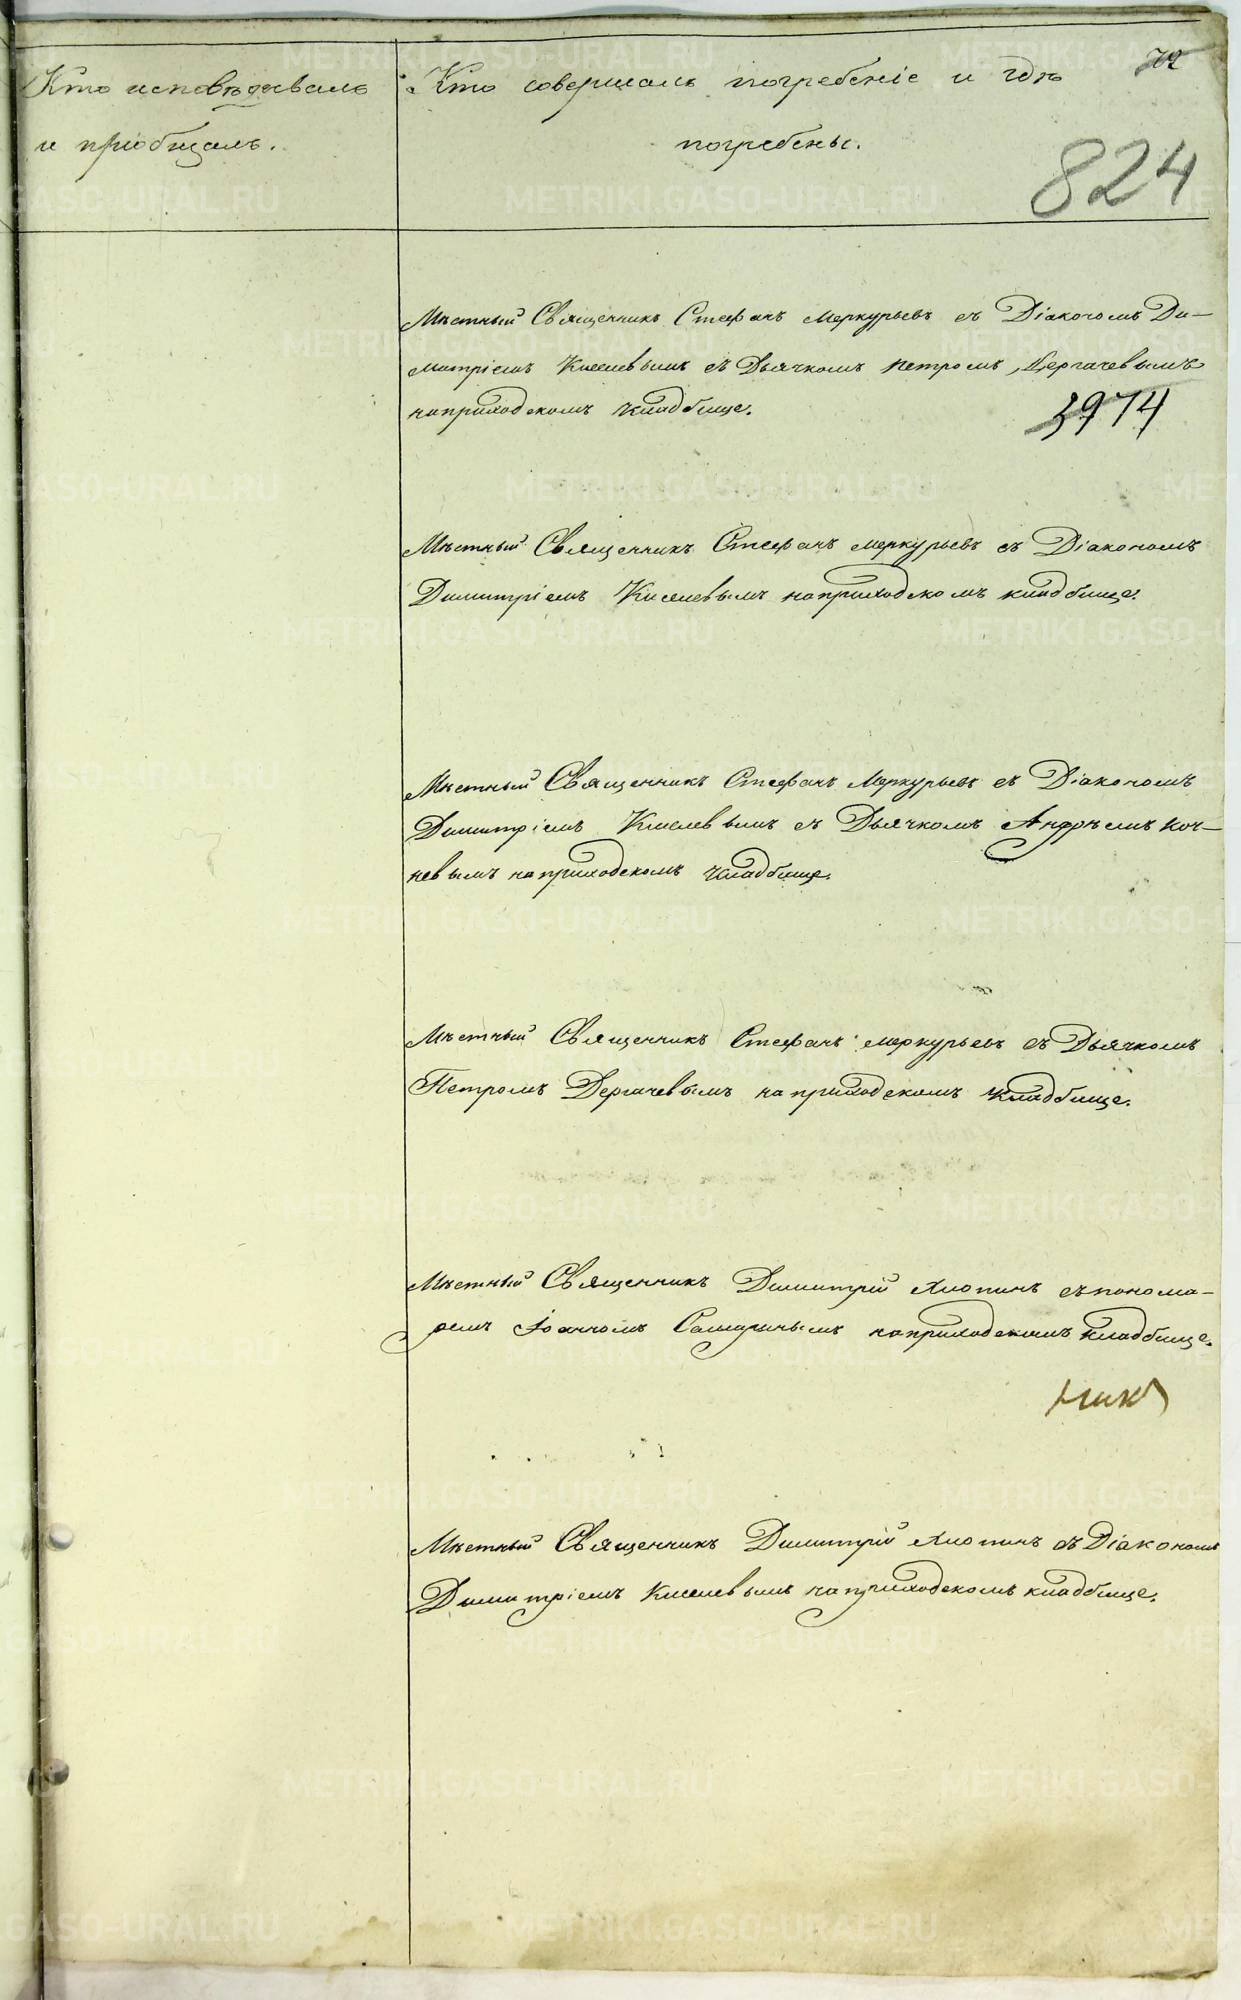 Кто исповѣдовалъ
и пріобщалъ.
Кто совершалъ погребеніе и гдѣ
погребены.
72
824
Мѣстный Священникъ Стефанъ Меркурьевъ съ Діакономъ Ди-
митріемъ Киселевымъ съ Дьячкомъ Петромъ Дергачевымъ
на приходскомъ кладбище.
3974
Мѣстный Священникъ Стефанъ Меркурьевъ съ Діакономъ
Димитріемъ Киселевымъ на приходскомъ кладбище.
Мѣстный Священникъ Стефанъ Меркурьевъ съ Діакономъ
Димитріемъ Киселевымъ съ Дьячкомъ Андрѣемъ Коч-
невымъ на приходскомъ кладбище.
Мѣстный Священникъ Стефанъ Меркурьевъ съ Дьячкомъ
Петромъ Дергачевымъ на приходскомъ кладбище.
Мѣстный Священникъ Димитрій Хлопинъ съ понома-
ремъ Іоанномъ на приходскомъ кладбище.
Мѣстный Священникъ Димитрій Хлопинъ съ Діакономъ
Димитріемъ Киселевымъ на приходскомъ кладбище.
METRIKI.GASO-URAL.RU